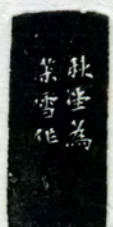 秋堂為
葉雪作